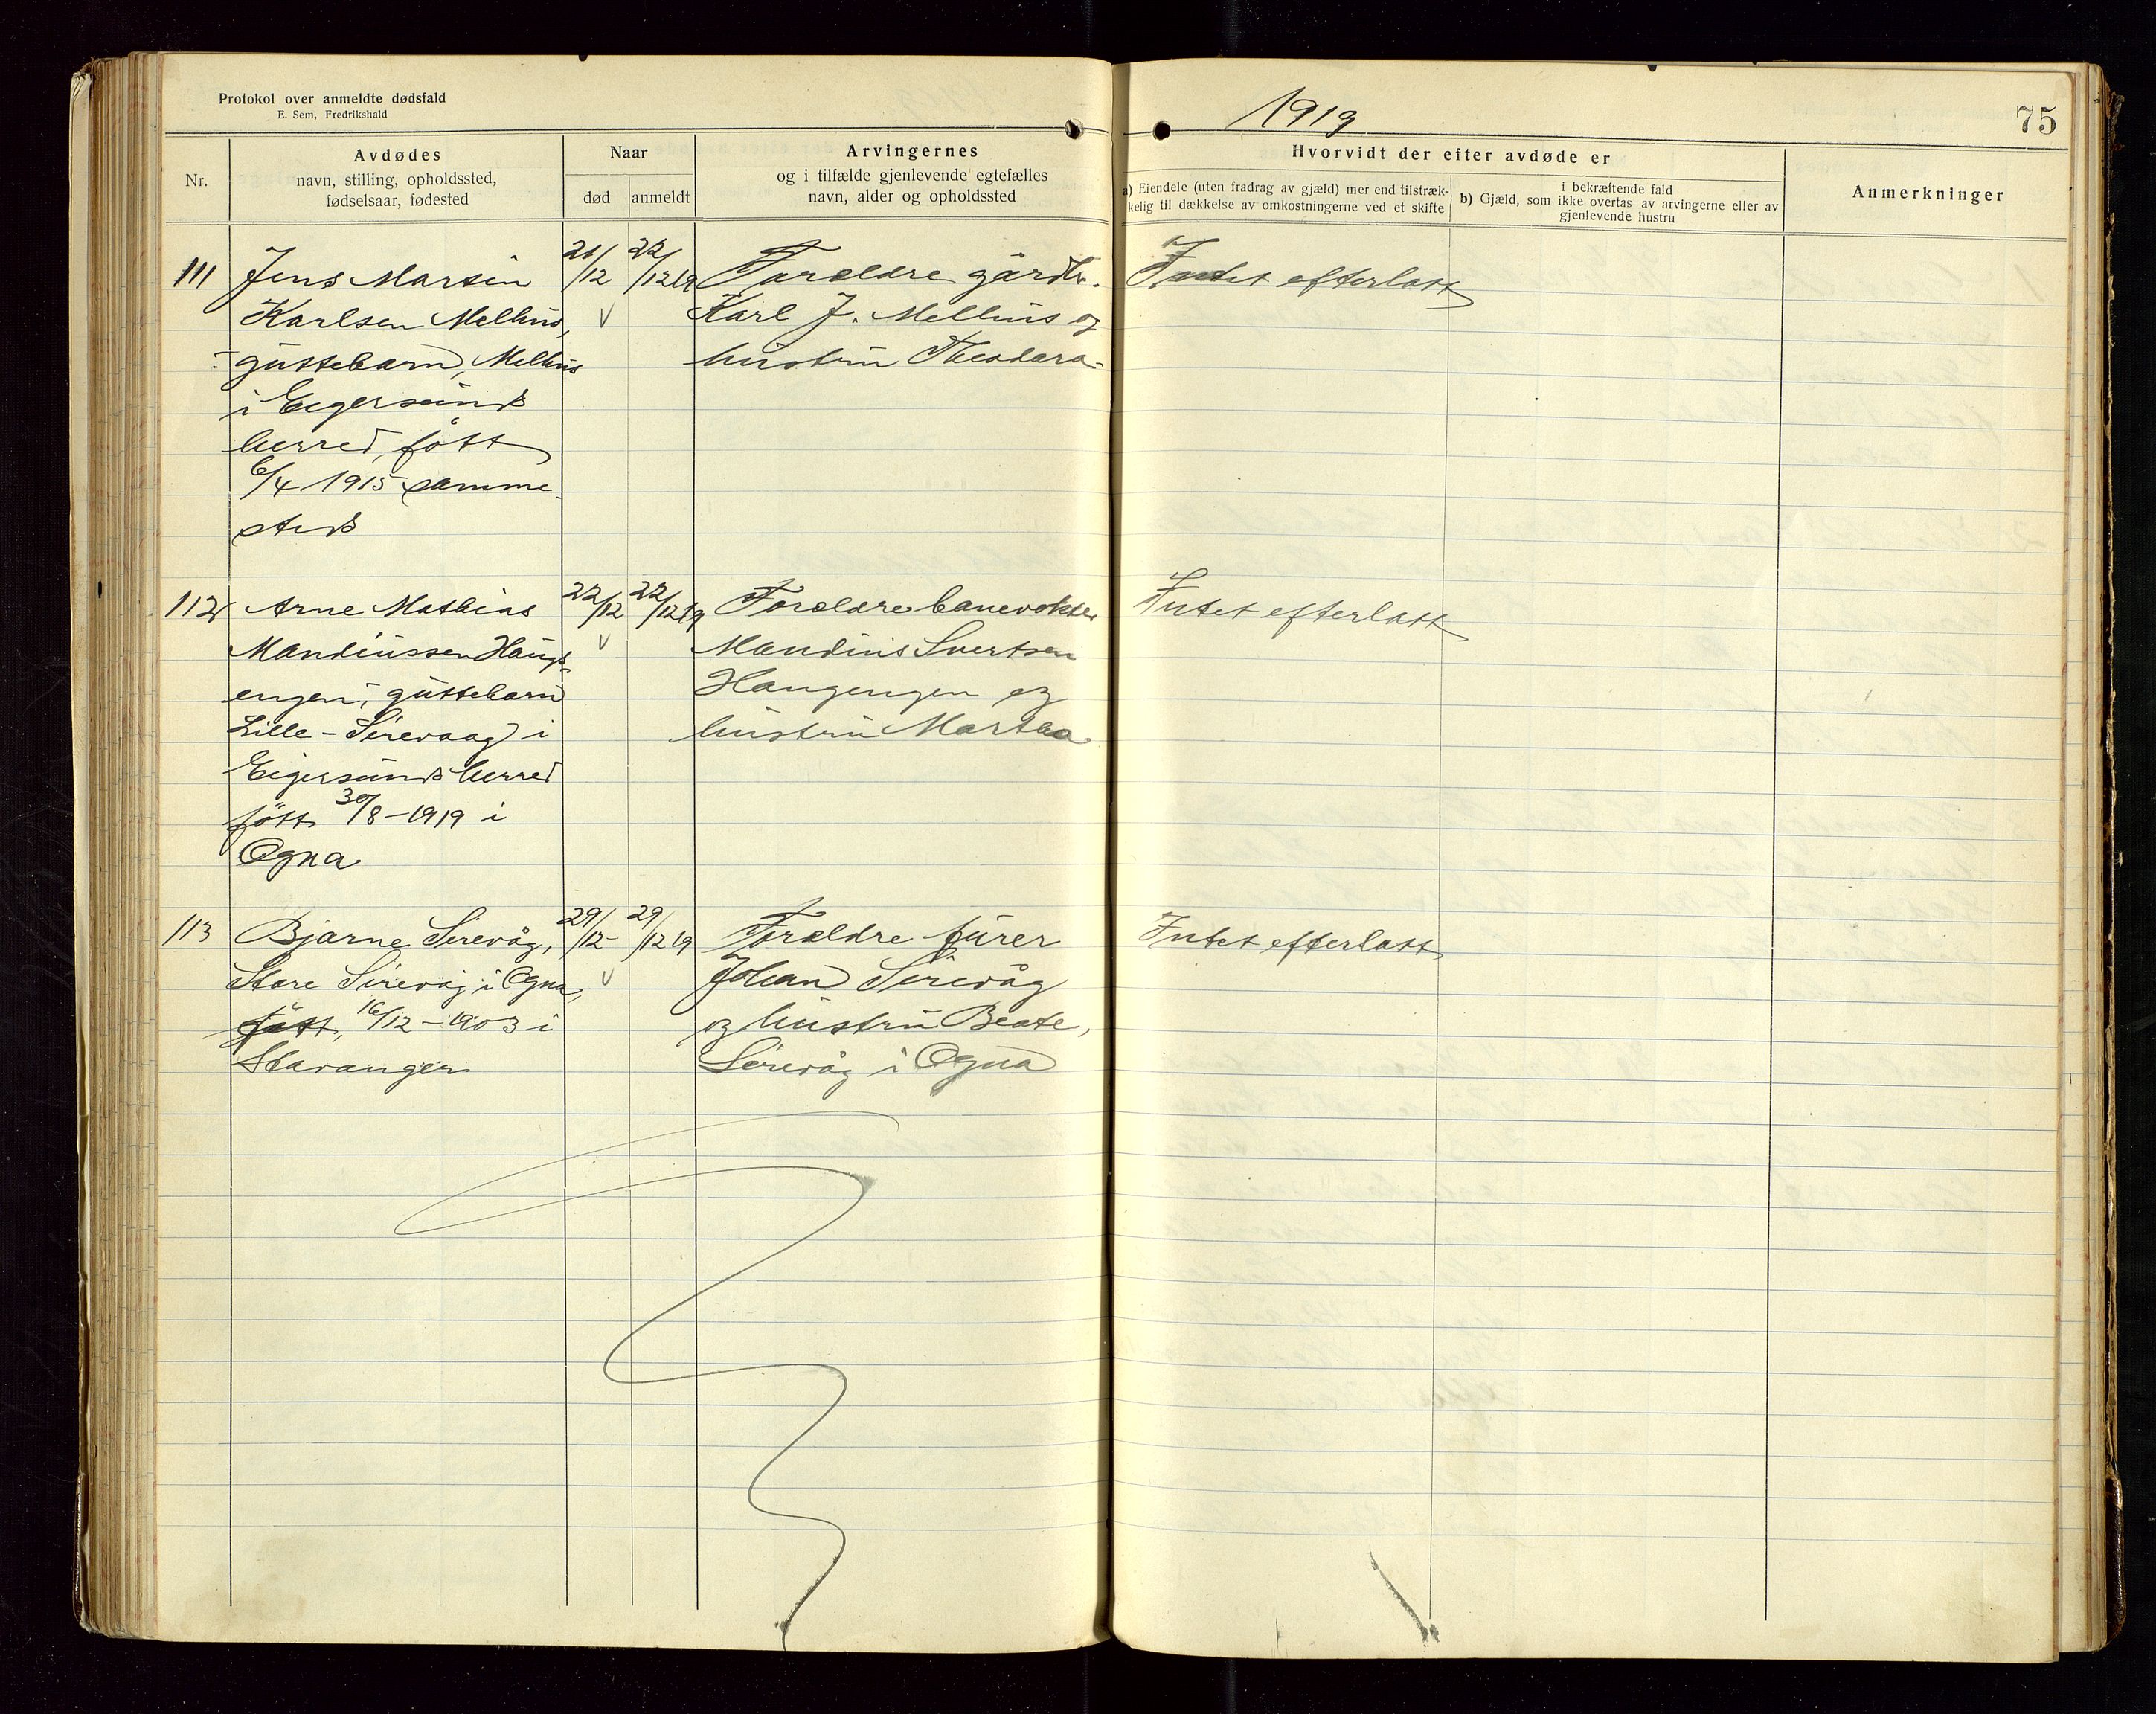 Protokol over anmeldte dødsfald
E. Sem, Fredrikshald
1919
75
Nr.
Avdødes
navn, stilling, opholdssted,
fødselsaar, fødested
Naar
død
anmeldt
Arvingernes
og i tilfælde gjenlevende egtefælles
navn, alder og opholdssted
Hvorvidt der efter avdøde er
a) Eiendele (uten fradrag av gjæld) mer end tilstræk-
kelig til dækkelse av omkostningerne ved et skifte
i bekræftende fald
b) Gjæld, som ikke overtas av arvingerne eller av
gjenlevende hustru
Anmerkninger
111
Jens Martin
Karlsen Melhus,
guttebarn, Melhus
i Eigersunds
herred, født
6/4 1915 samme-
steds
21/12
22/12 19
Forældre gårdbr.
Karl J. Melhus og
hustru Theodora
Intet efterlatt
112
Arne Mathias
Mandiussen Haugs-
engen, guttebarn
Lille-Sirevaag i
Eigersunds herred
født 30/8-1919 i
Ogna
22/12
22/12 19
Forældre banevokter
Mandius Sivertsen
Haugengen og
hustru Martha
Intet efterlatt
113
Bjarne Sirevåg,
Store Sirevåg i Ogna,
født, 16/12-1903 i
Stavanger
29/12
29/12 19
Forældre fürer
Johan Sirevåg
og hustru Beate,
Sirevåg i Ogna
Intet efterlatt